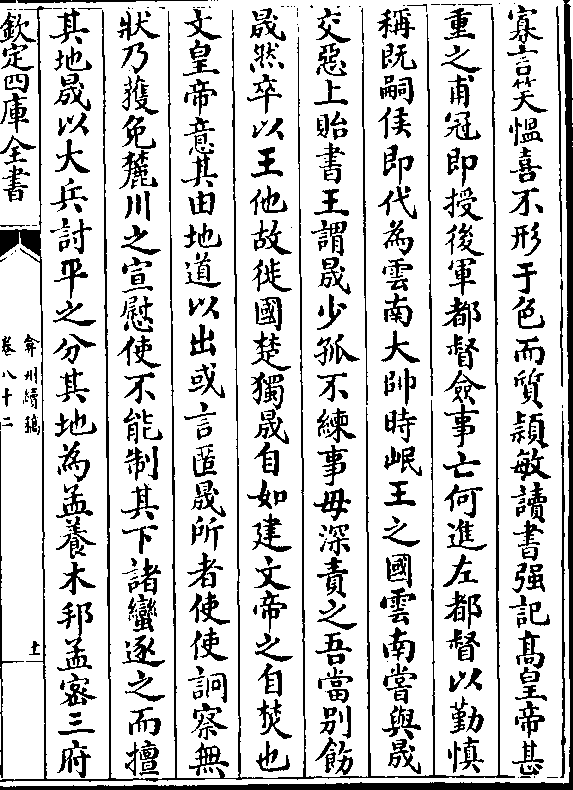 寡言笑愠喜不形于色而質穎敏讀書强記髙皇帝甚
重之甫冠即授後軍都督僉事亡何進左都督以勤慎
稱既嗣侯即代為雲南大帥時岷王之國雲南嘗與晟
交惡上貽書王謂晟少孤不練事毋深責之吾當别飭
晟然卒以王他故徙國楚獨晟自如建文帝之自焚也
文皇帝意其由地道以出或言匿晟所者使使詗察無
狀乃獲免麓川之宣慰使不能制其下諸蠻逐之而擅
其地晟以大兵討平之分其地為孟養木邦孟密三府
欽定四庫全書
弇州續稿
卷八十二
十